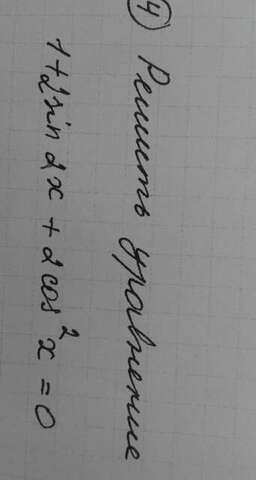 4) Решить уравнение
1+2sin2x+2cos²x=0